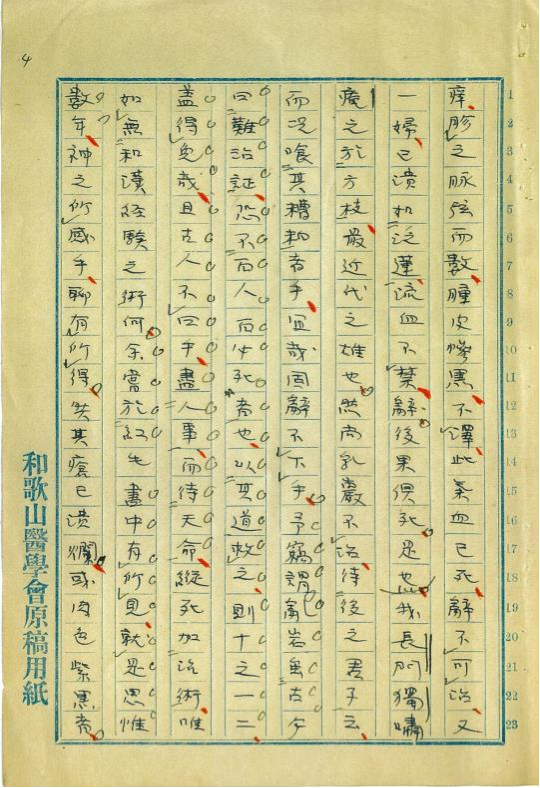 痺胗之脉弦而數腫皮慘黒不澤此悪血已死辭不可治又
一婦已潰如泛蓮流血不禁辭後果倶死是也我長門獨嘯
庵之於方技最近代之雄也然尚乳嵓不治待後之君子云
而况喰其糟粕者乎宜哉固辭不下手予竊謂离岩㕣古字
曰難治証恐不百人百必死者也以其道救之則十之一二
盖得免哉且古人不曰乎盡人事而待天命縦死加治術唯
如無和漢経験之術何余嘗於紅毛書中有所見就是思惟
數年神之所感乎聊有所得矣其瘡已潰爛或肉色紫黒者
和歌山醫學會原稿用紙
4
1
2
3
4
5
6
7
8
9
10
11
12
13
14
15
16
17
18
19
20
21
22
23